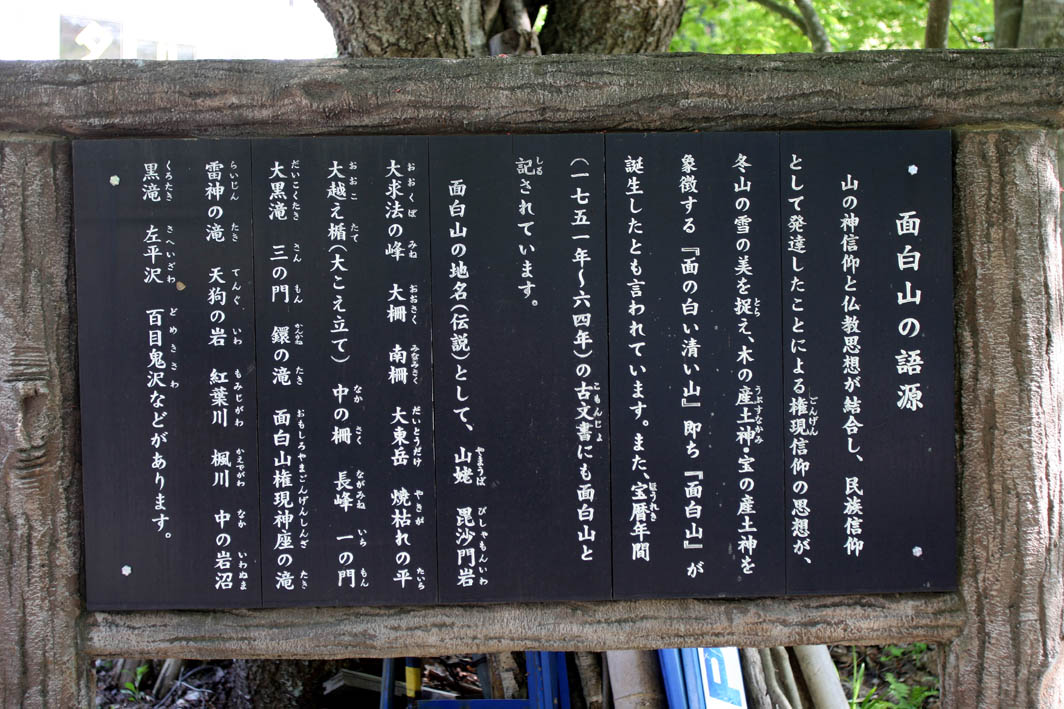 面白山の語源
山の神信仰と仏教思想が結合し、民族信仰
として発達したことによる権現信仰の思想が、
冬山の雪の美を捉え、木の産土神・宝の産土神を
象徴する『面の白い清い山』即ち『面白山』が
誕生したとも言われています。また、宝暦年間
(一七五一年〜六四年)の古文書にも面白山と
記されています。
面白山の地名(伝説)として、山姥 毘沙門岩
大求法の峰 大柵 南柵 大東岳 焼枯れの平
大越え楯(大こえ立て) 中の柵 長峰 一の門
大黒滝 三の門 鐶の滝 面白山権現神座の滝
雷神の滝 天狗の岩 紅葉川 楓川 中の岩沼
黒滝 左平沢 百目鬼沢などがあります。